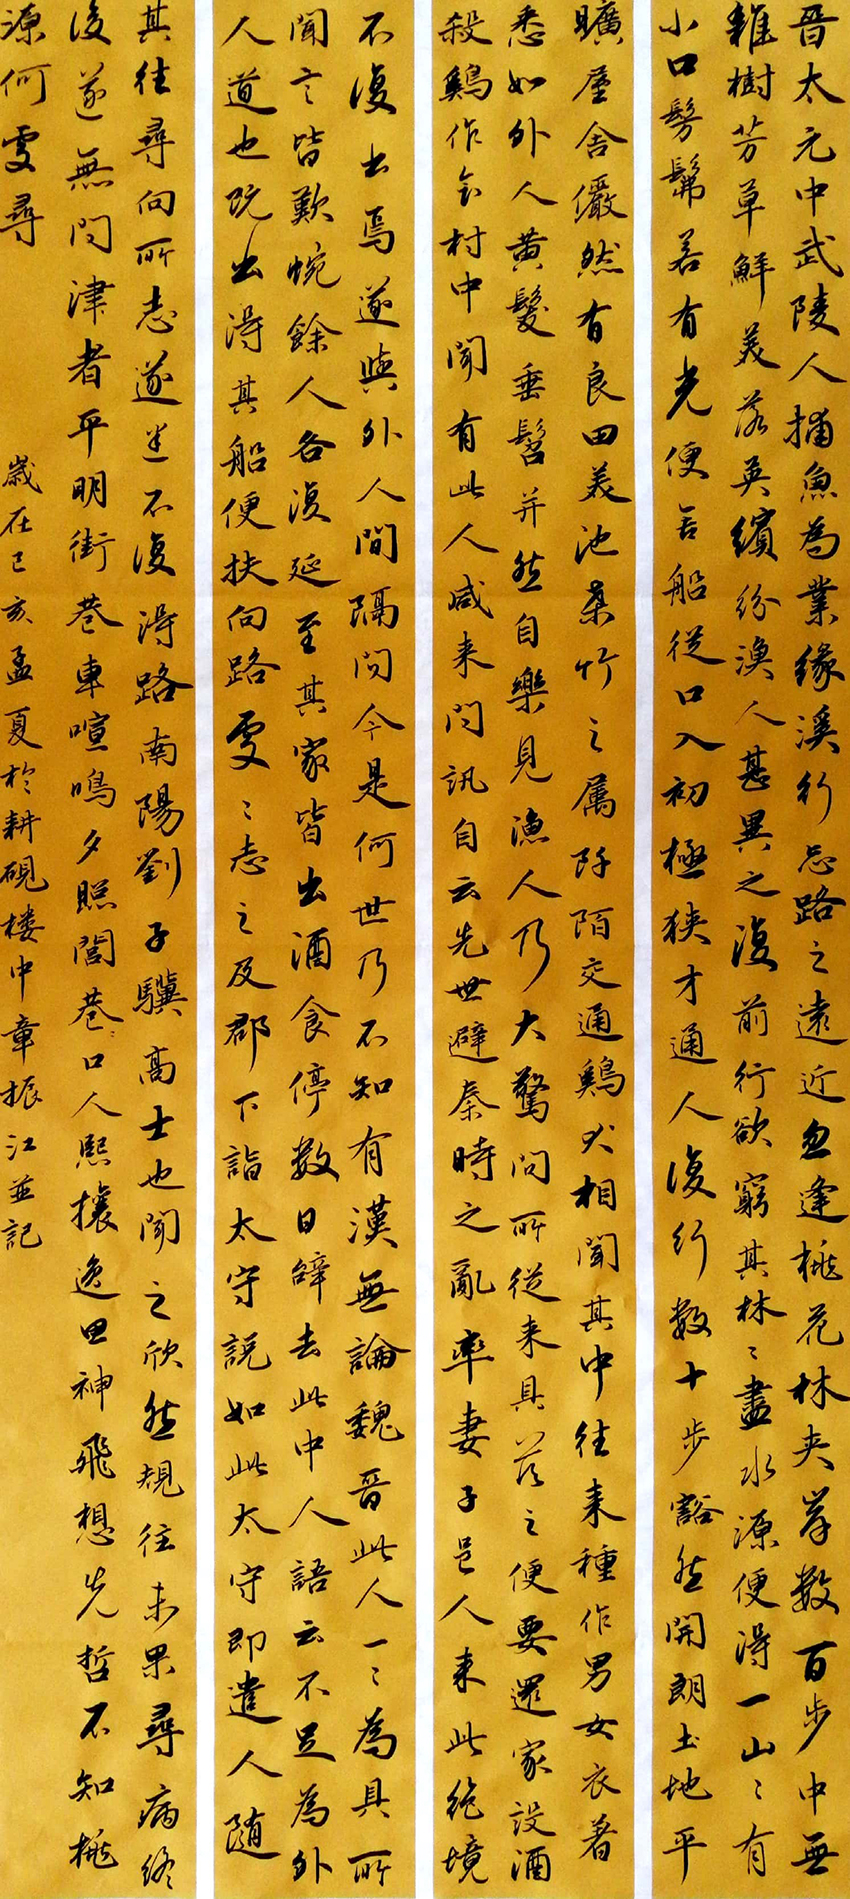 晉太元中武陵人捕魚為業緣溪行忘路之遠近忽逢桃花林夾岸數百步中無
雜樹芳草鮮美落英繽紛漁人甚異之復前行欲窮其林〻盡水源便得一山〻有
小口髣髴若有光便舍船從口入初極狹才通人復行數十步豁然開朗土地平
曠屋舍儼然有良田美池桑竹之属阡陌交通鷄犬相聞其中往来種作男女衣着
悉如外人黃髮垂髫并然自樂見漁人乃大驚問所從来具答之便要還家設酒
殺鷄作食村中聞有此人咸来問訊自云先世避秦時之亂率妻子邑人来此絶境
不復出焉遂與外人間隔問今是何世乃不知有漢無論魏晉此人一〻為具所
聞言皆歎惋餘人各復延至其家皆出酒食停數日辭去此中人語云不足為外
人道也既出得其船便扶向路處〻志之及郡下詣太守説如此太守即遣人随
其往尋向所志遂迷不復得路南陽劉子驥高士也聞之欣然規往未果尋病終
後遂無問津者平明街巷車喧鳴夕照閭巷口人熙攘逸思神飛想先哲不知桃
源何處尋
歲在己亥孟夏於耕硯楼中章振江並記